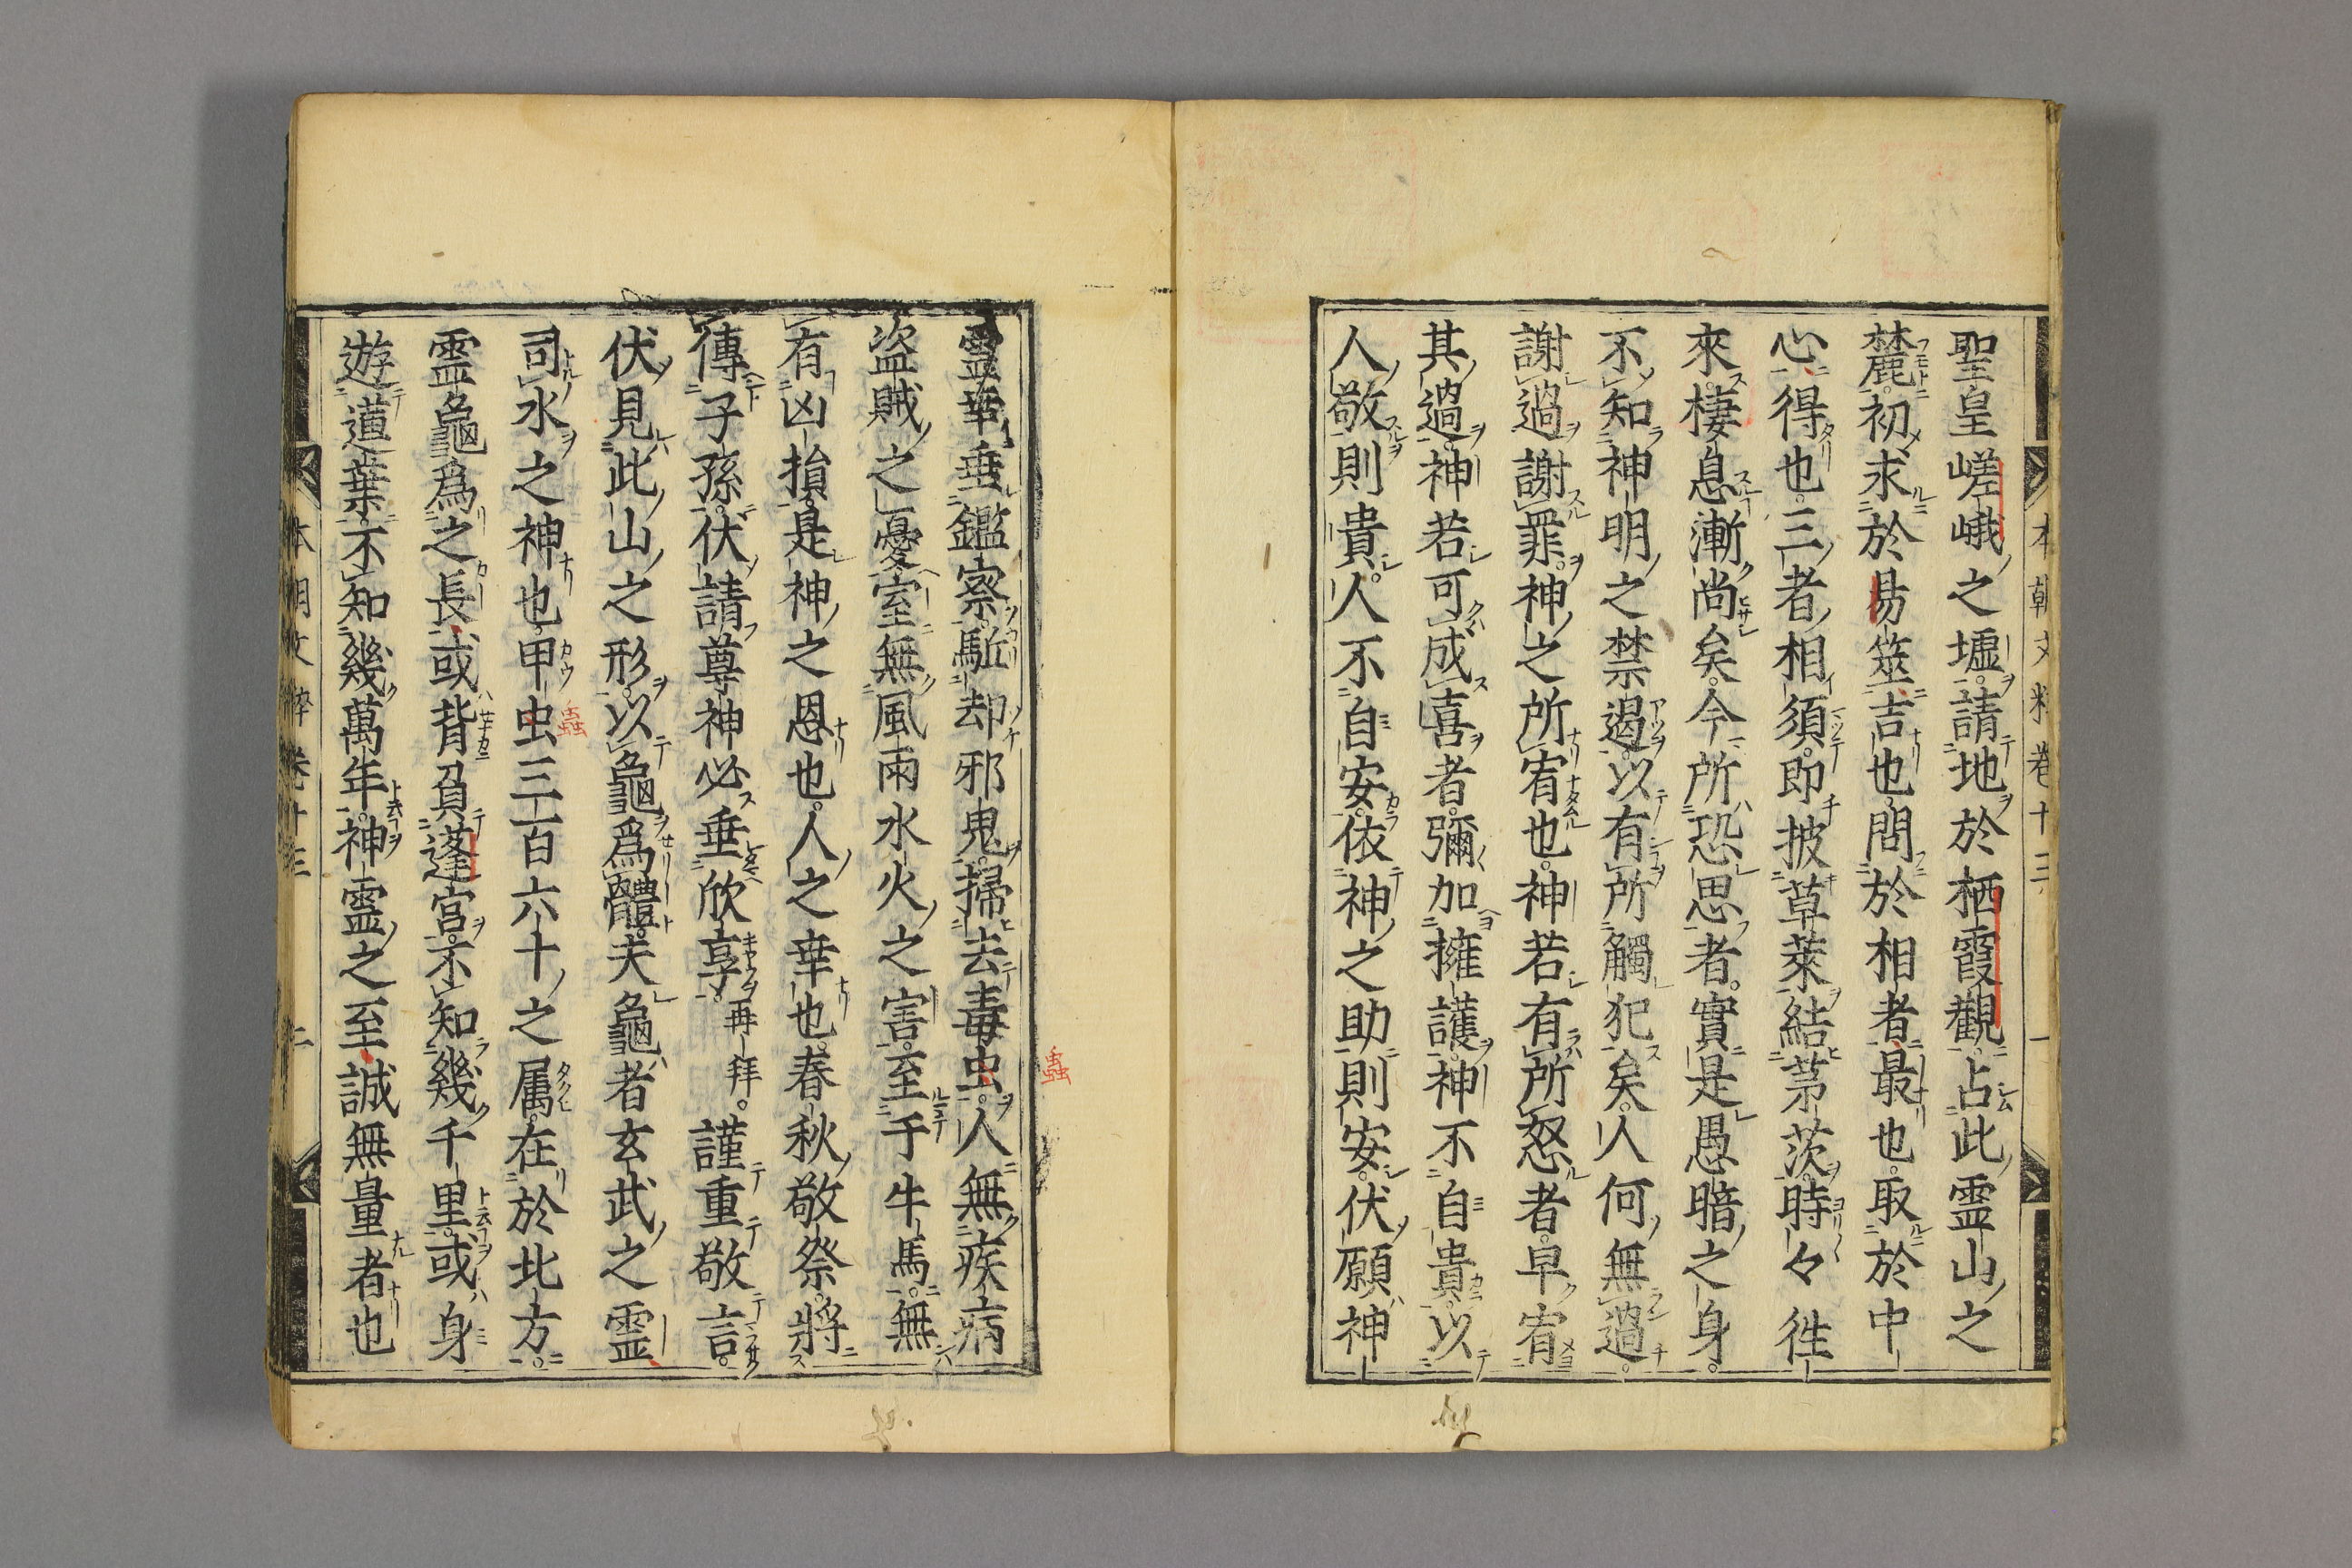 本朝文粹卷十三 一
聖皇嵯峨之墟。請地於栖霞觀。占此霊山之
麓。初求於易筮。吉也。問於相者。最也。取於中
心。得也。三者相須。即披草萊。結茅茨。時々徃
來。棲息漸尚矣。今所恐思者。實是愚暗之身。
不知神明之禁遏。以有所觸犯矣。人何無過。
謝過謝罪。神之所宥也。神若有所怒者。早宥
其過。神若可成喜者。彌加擁護。神不自貴。以
人敬則貴。人不自安。依神之助則安。伏願神
霊華垂鑑察。駈却邪鬼。掃去毒虫。人無疾病
盜賊之憂。室無風雨水火之害。至于牛馬。無
有凶損。是神之恩也。人之幸也。春秋敬祭。將
傳子孫。伏請尊神必垂欣享。再拜。謹重敬言。
伏見此山之形。以龜爲體。夫龜者玄武之霊
司水之神也。甲虫三百六十之属。在於北方。
霊龜爲之長。或背負蓬宮。不知幾千里。或身
遊蓮葉。不知幾萬年。神霊之至誠無量者也
本朝文粹卷十三 二
蟲
蟲